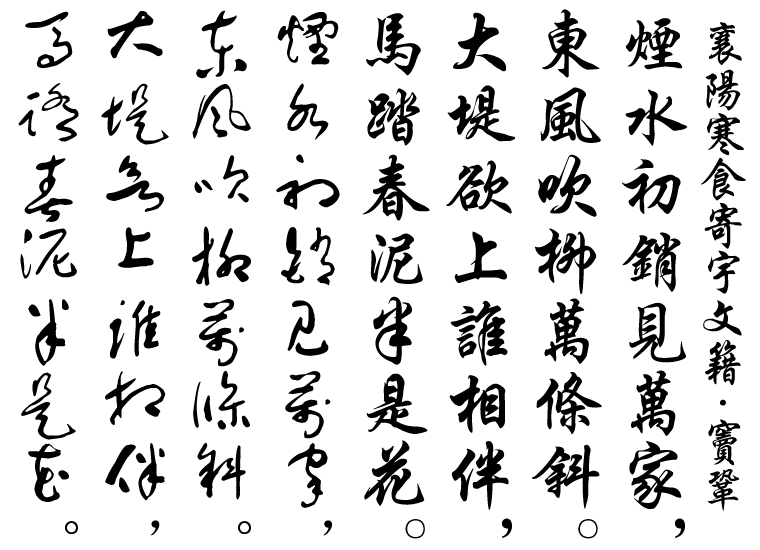 襄陽寒食寄宇文籍·竇鞏
煙水初銷見萬家，
東風吹柳萬條斜。
大堤欲上誰相伴，
馬踏春泥半是花。
煙水初銷見萬家，
東風吹柳萬條斜。
大堤欲上誰相伴，
馬踏春泥半是花。